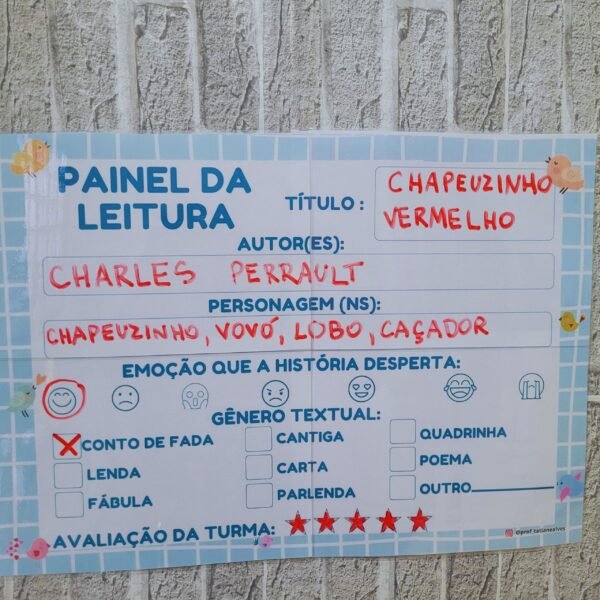 PAINEL DA
LEITURA
TÍTULO :
CHAPEUZINHO
VERMELHO
AUTOR(ES):
CHARLES PERRAULT
PERSONAGEM (NS):
CHAPEUZINHO, VOVÓ, LOBO, CAÇADOR
EMOÇÃO QUE A HISTÓRIA DESPERTA:
GÊNERO TEXTUAL:
CONTO DE FADA
CANTIGA
QUADRINHA
LENDA
CARTA
POEMA
FÁBULA
PARLENDA
OUTRO
AVALIAÇÃO DA TURMA:
@prof_tatianealves